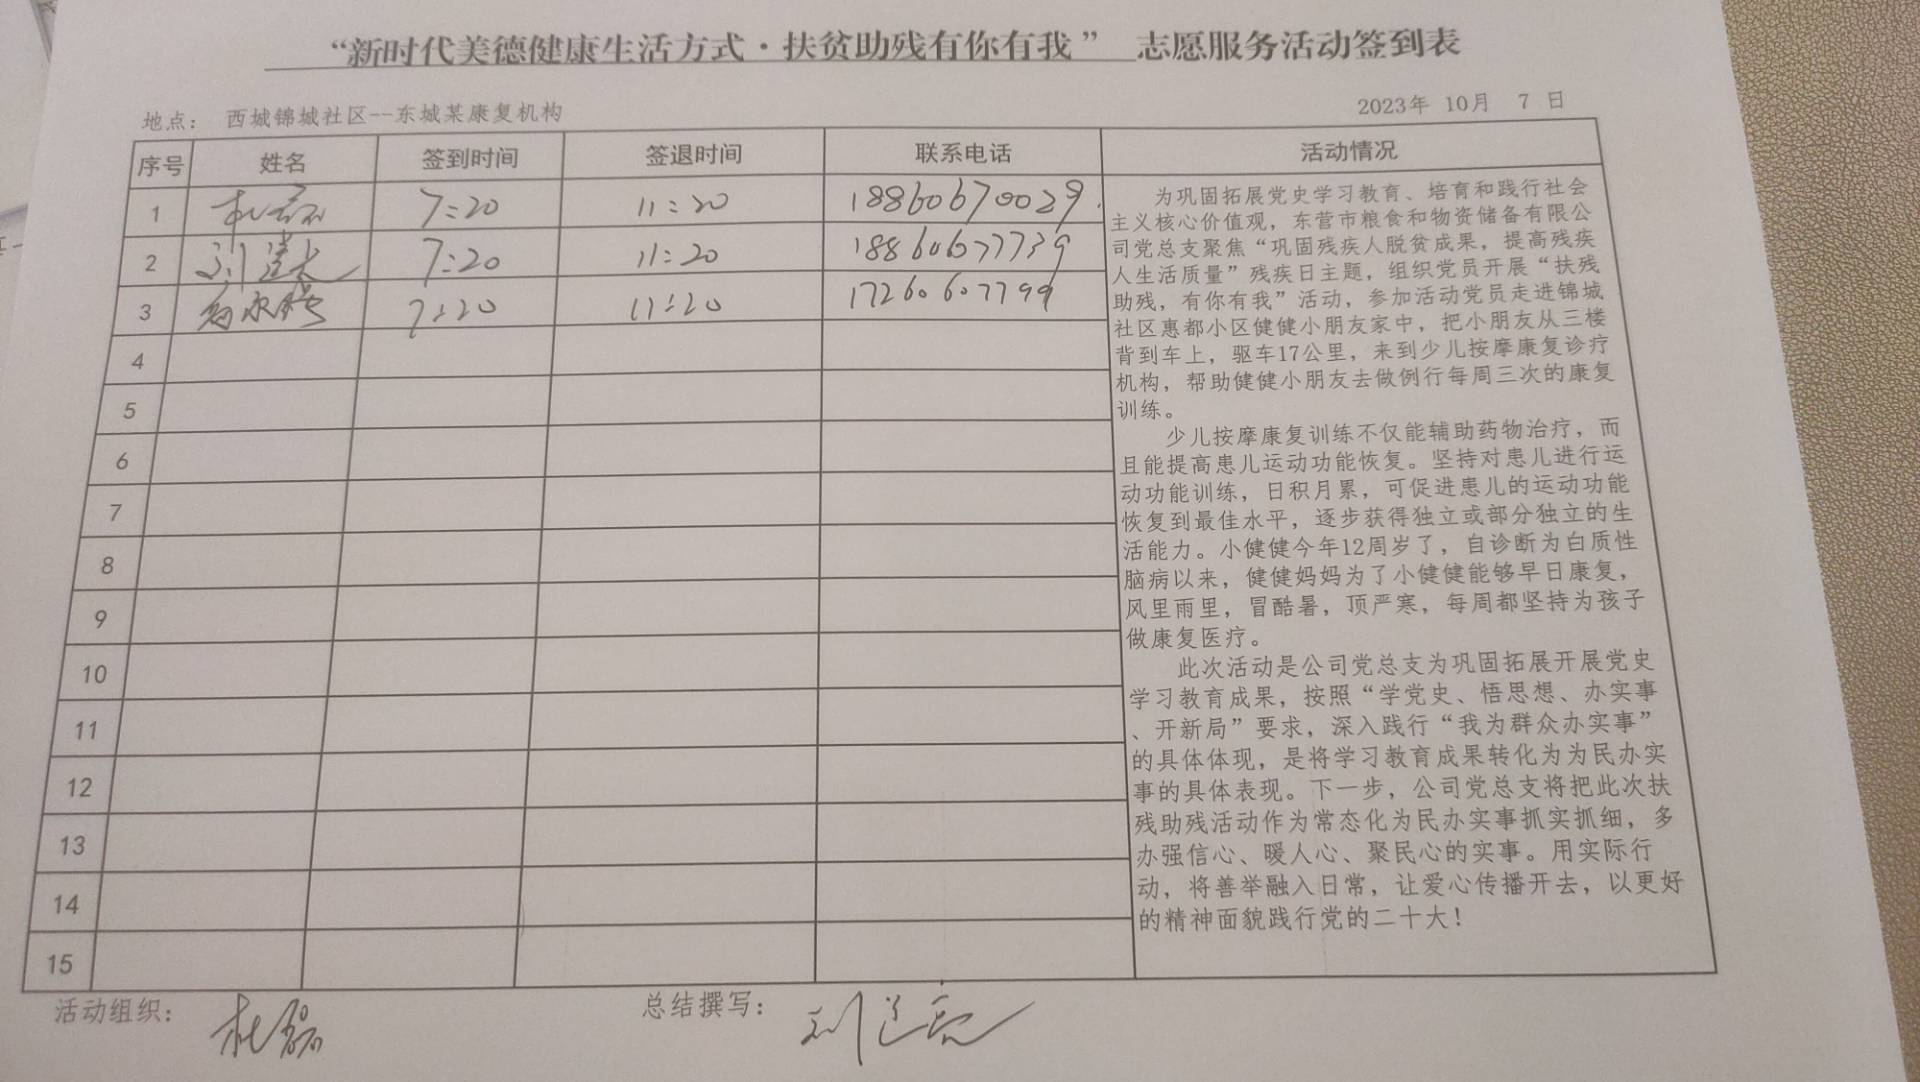 “新时代美德健康生活方式·扶贫助残有你有我” 志愿服务活动签到表
地点： 西城锦城社区--东城某康复机构
2023年 10月 7 日
序号 姓名 签到时间 签退时间 联系电话 活动情况
1 杜磊 7:20 11:20 18860670029
2 7:20 11:20 18860677739
3 7:20 11:20 17260607799
4
5
6
7
8
9
10
11
12
13
14
15
为巩固拓展党史学习教育、培育和践行社会
主义核心价值观，东营市粮食和物资储备有限公
司党总支聚焦“巩固残疾人脱贫成果，提高残疾
人生活质量”残疾日主题，组织党员开展“扶残
助残，有你有我”活动，参加活动党员走进锦城
社区惠都小区健健小朋友家中，把小朋友从三楼
背到车上，驱车17公里，来到少儿按摩康复诊疗
机构，帮助健健小朋友去做例行每周三次的康复
训练。
少儿按摩康复训练不仅能辅助药物治疗，而
且能提高患儿运动功能恢复。坚持对患儿进行运
动功能训练，日积月累，可促进患儿的运动功能
恢复到最佳水平，逐步获得独立或部分独立的生
活能力。小健健今年12周岁了，自诊断为白质性
脑病以来，健健妈妈为了小健健能够早日康复，
风里雨里，冒酷暑，顶严寒，每周都坚持为孩子
做康复医疗。
此次活动是公司党总支为巩固拓展开展党史
学习教育成果，按照“学党史、悟思想、办实事
、开新局”要求，深入践行“我为群众办实事”
的具体体现，是将学习教育成果转化为为民办实
事的具体表现。下一步，公司党总支将把此次扶
残助残活动作为常态化为民办实事抓实抓细，多
办强信心、暖人心、聚民心的实事。用实际行
动，将善举融入日常，让爱心传播开去，以更好
的精神面貌践行党的二十大！
活动组织： 杜磊
总结撰写：